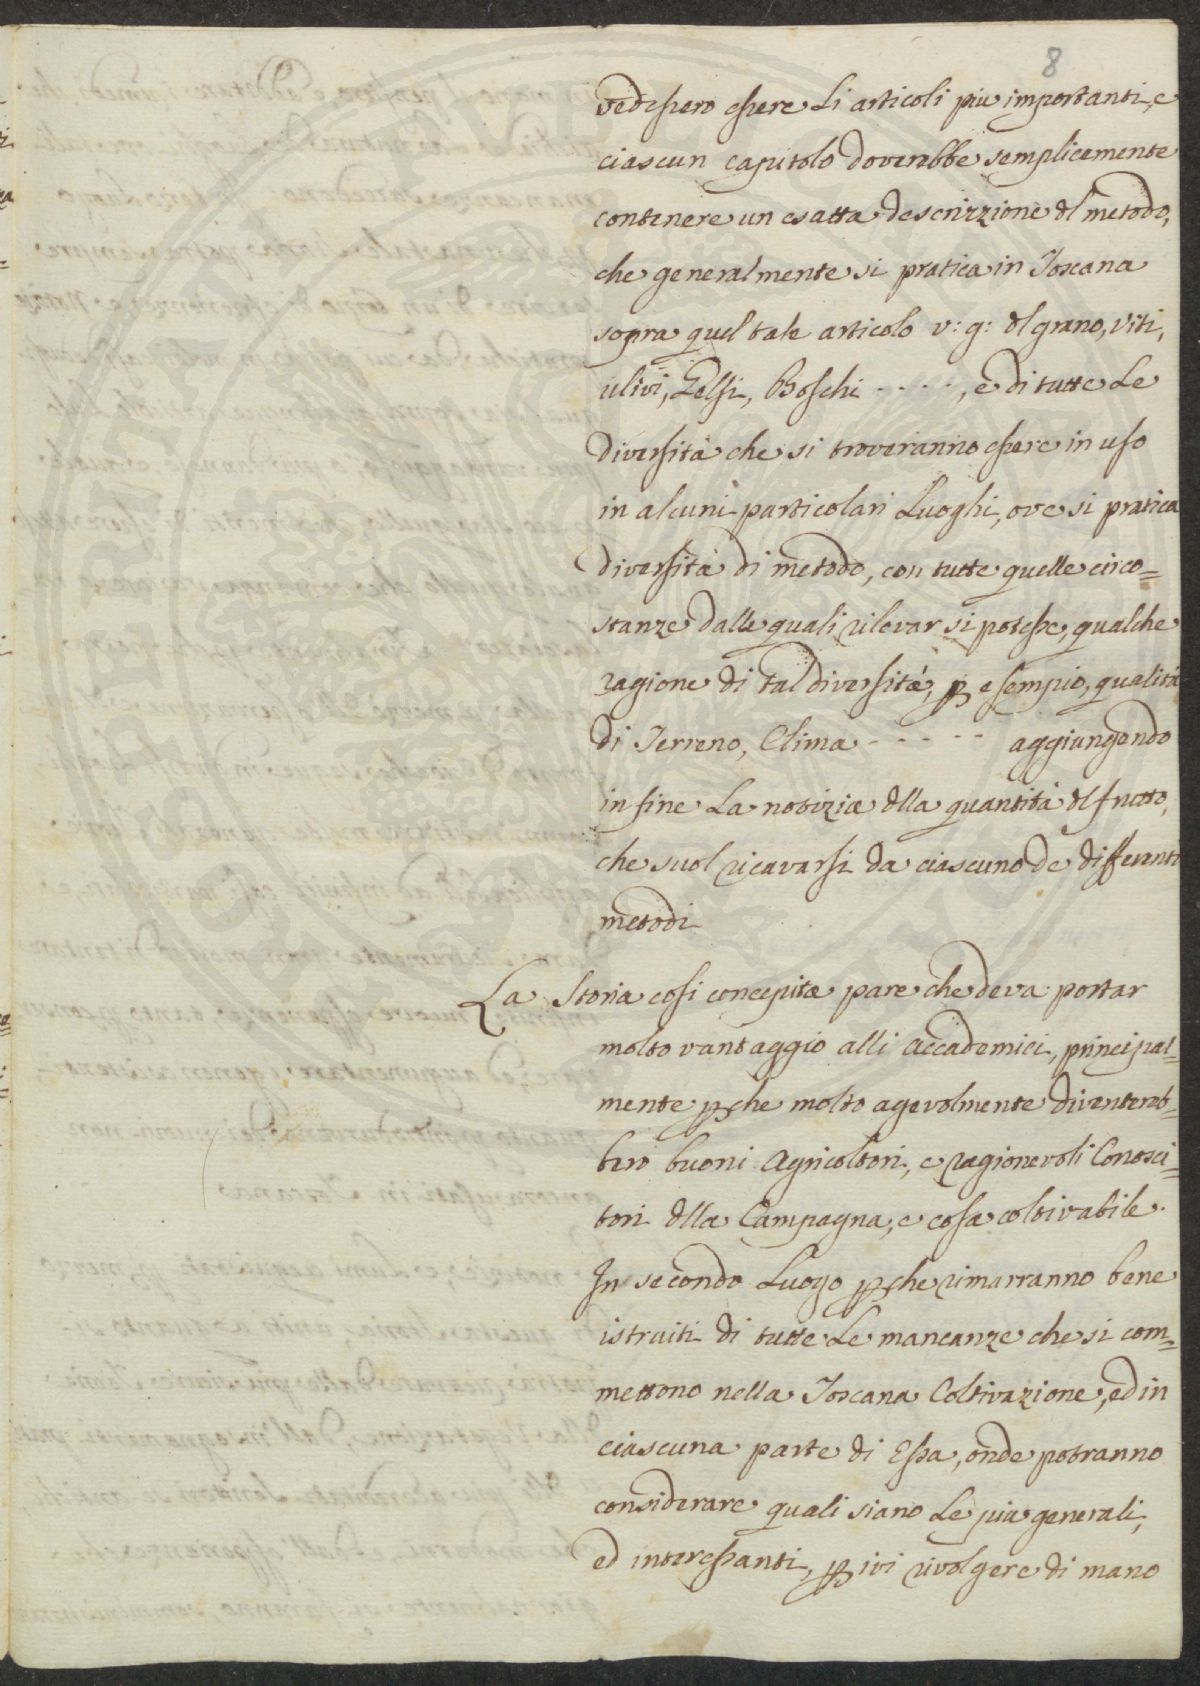 8
vedessero essere Li articoli piu importanti, e
ciascun capitolo doverebbe semplicemente
contenere un esatta descrizzione dl metodo,
che generalmente si pratica in Toscana
sopra quel tale articolo v: g: dl grano, viti,
ulivi, Gelsi, Boschi - - - - -, e di tutte Le
diversità che si troveranno essere in uso
in alcuni particolari Luoghi, ove si pratica
diversità di metodo, con tutte quelle circo=
stanze dalle quali rilevar si potesse, qualche
ragione di tal diversità, p esempio, qualità
di Terreno, Clima - - - - - aggiungendo
in fine La notizia dlla quantità dl frutto,
che suol ricavarsi da ciascuno de differenti
metodi
La Storia cosi concepita pare che deva portar
molto vantaggio alli Accademici, principal=
mente pche molto agevolmente diventereb=
bero buoni Agricoltori, e ragionevoli Conosci=
tori dlla Campagna, e cosa coltivabile.
In secondo Luogo pche rimarranno bene
istruiti di tutte Le mancanze che si com=
mettono nella Toscana Coltivazione, ed in
ciascuna parte di Essa, onde potranno
considerare quali siano Le piu generali,
ed interessanti, p ivi rivolgere di mano